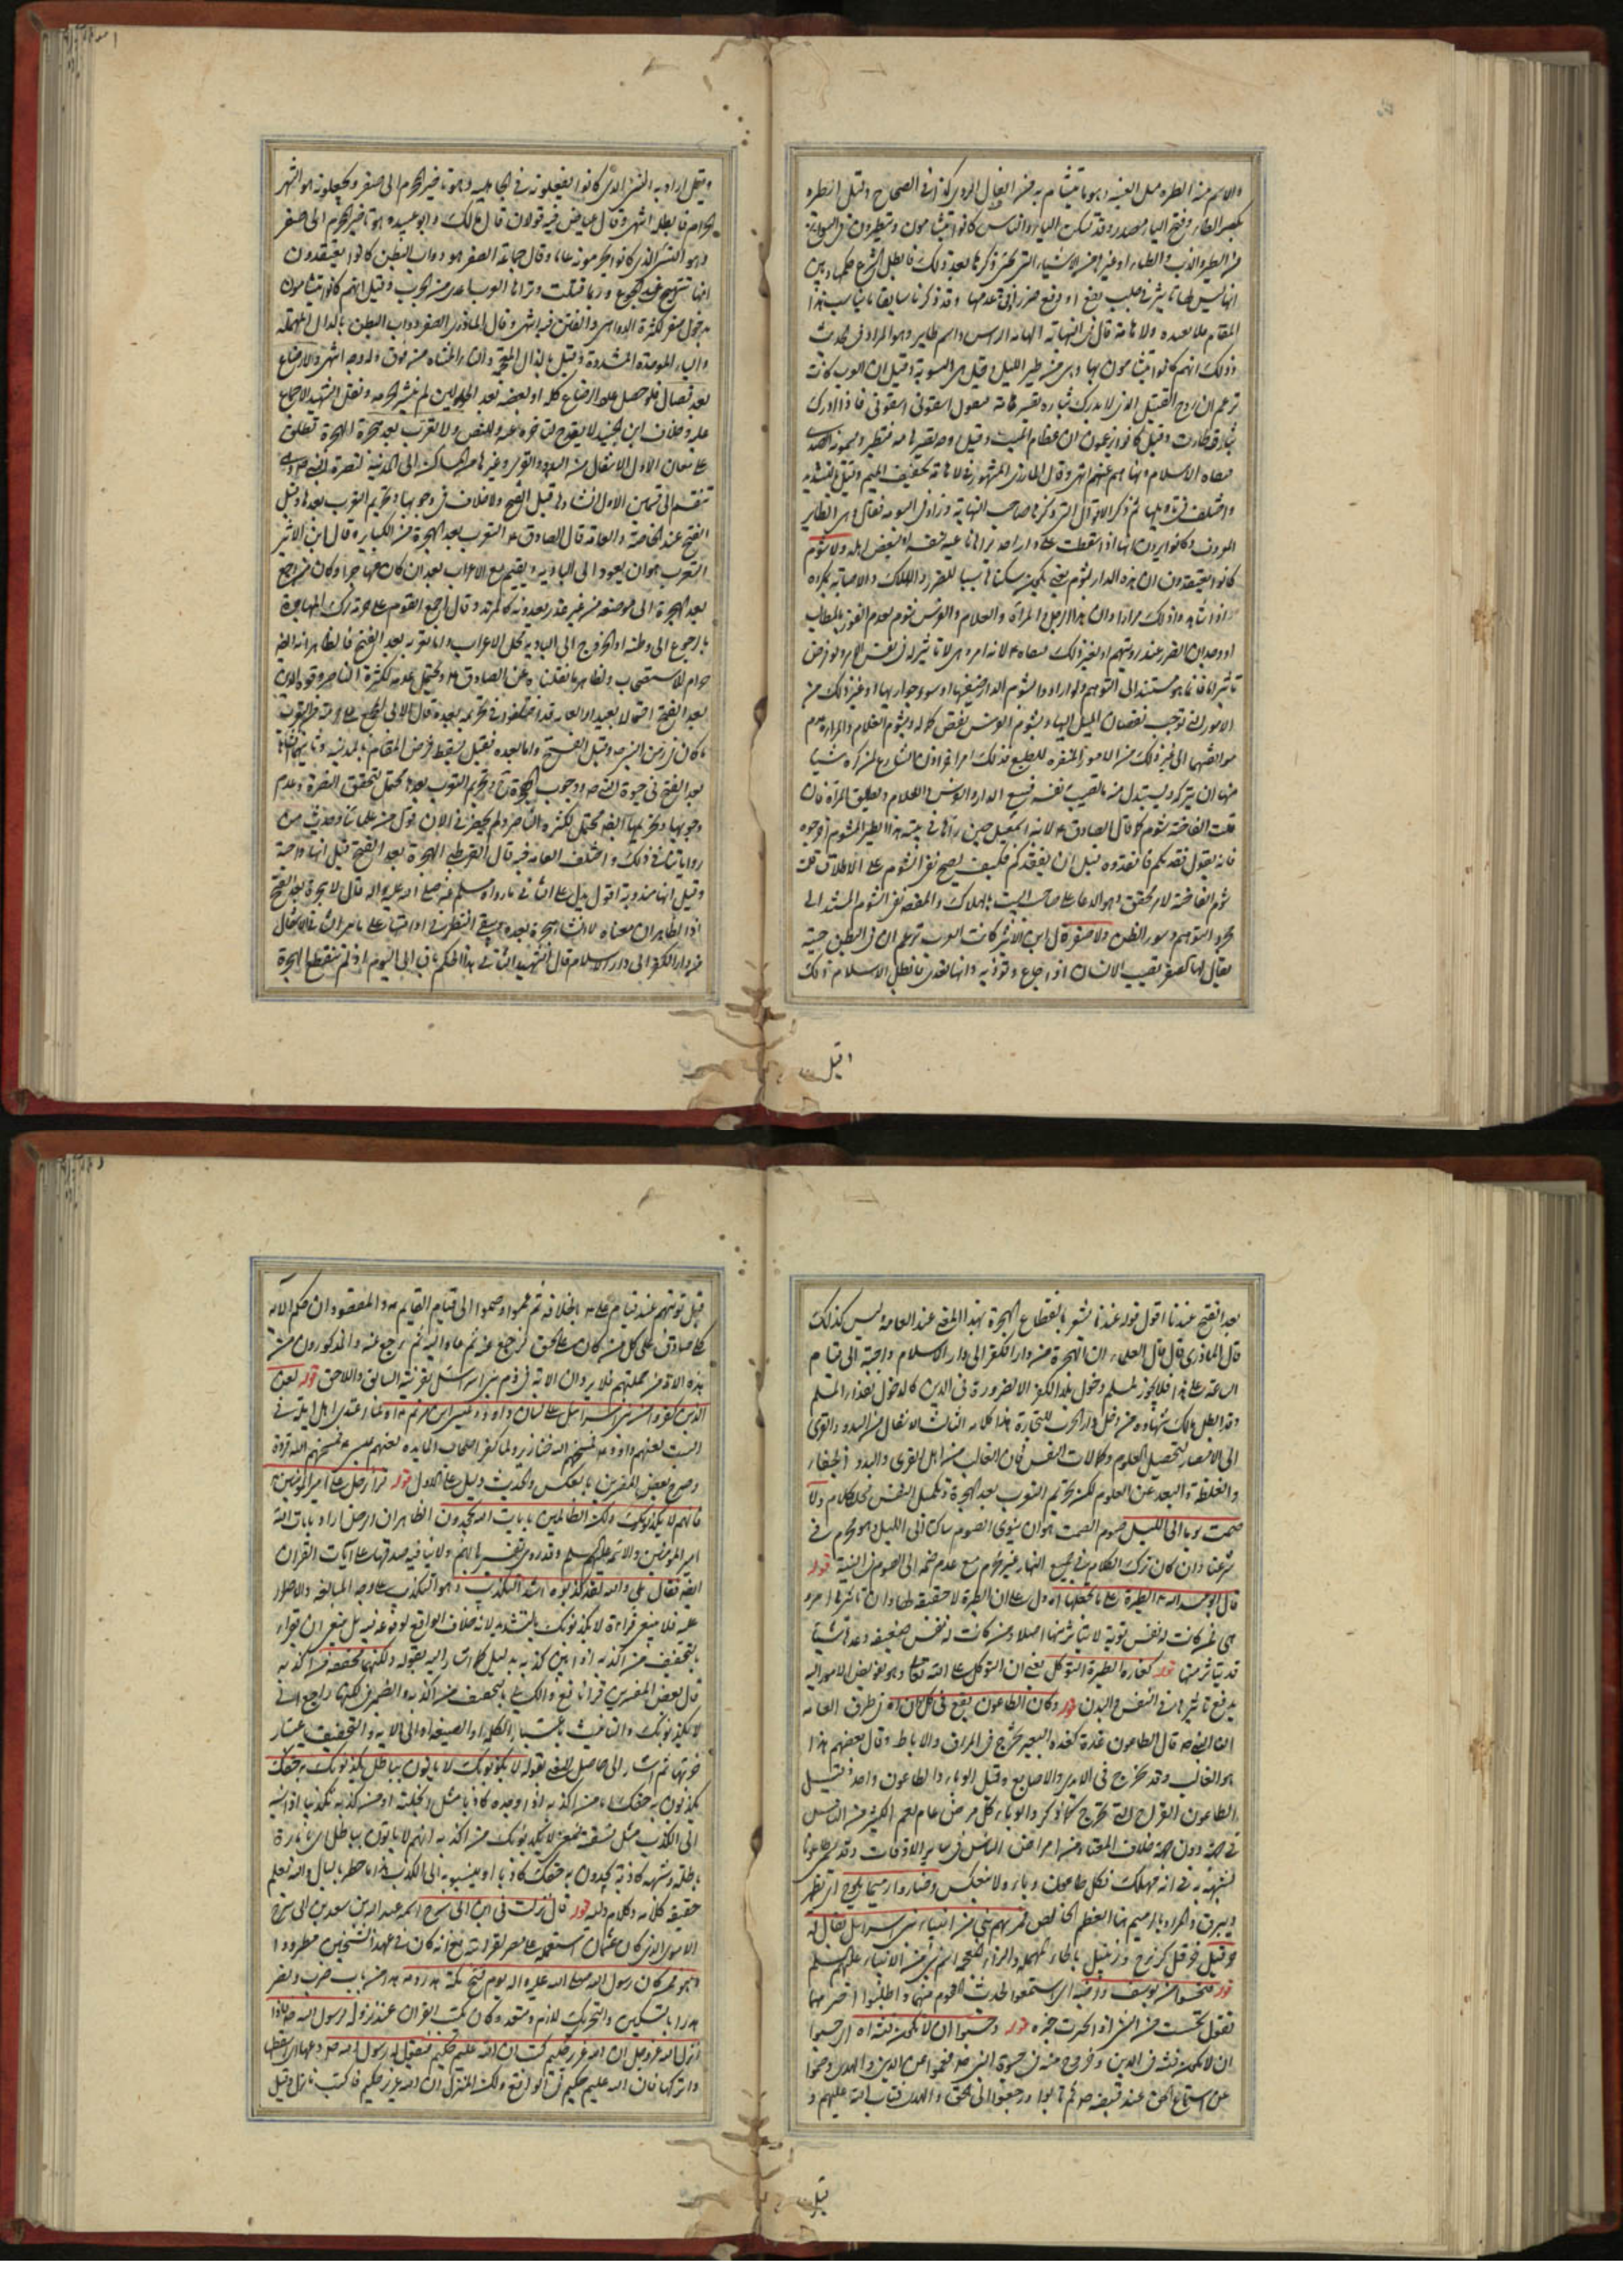 والاسم منه الطيرة مثل العنبة وهو ما يتشاءم به من الفال الردي كذا في الصحاح وقيل الطيرة
بكسر الطاء وفتح الياء مصدر وقد تسكن الياء والناس كانوا يتشامون ويتطيرون
من الطير والظباء وغيرها من الاشياء التي ذكرها بعد ذلك فابطل الشرع حكمها وبين
انها ليس لها تاثير في جلب نفع او دفع ضرر وقد ذكرنا سابقا ما يناسب هذا
المقام ولا هامة قال في النهاية الهامة الراس واسم طاير وهو المراد في الحديث
وذلك انهم كانوا يتشامون بها وهي من طير الليل وقيل هي البومة وقيل ان العرب كانت
تزعم ان روح القتيل الذي لا يدرك بثاره تصير هامة فيقول اسقوني اسقوني فاذا ادرك
بثاره طارت وقيل كانوا يزعمون ان عظام الميت وقيل روحه تصير هامة فتطير ويسمونه الصدى
فنفاه الاسلام ونهاهم عنه انتهى وقال المازري المشهور في لا هامة تخفيف الميم وقيل بالتشديد
واختلف في تاويلها ثم ذكر الاقوال التي ذكرها صاحب النهاية وزاد في البومة فقال وهي الطاير
المعروف وكانوا يرون انها اذا سقطت على دار احد يراها ناعية نفسه او بعض اهله ولا شوم
كانوا يعتقدون ان هذه الدار شوم
او وجدان الضرر عند رويتهم او لغير ذلك فنفاه لانه امر وهمي لا تاثير له في نفس الامر ولو فرض
الامور التي توجب نقصان الميل اليها وبشوم الفرس نقص كماله وبشوم الغلام والمراة عدم
موافقتهما الى غير ذلك من الامور المنفرة للطبع فذلك امر
منها ان يتركه ويستبدل منه ما تطيب نفسه فيبيع الدار والفرس والغلام ويطلق المراة فان
قلت الفاختة شوم كما قال الصادق لابنه اسمعيل حين راها في بيته هذا الطير المشوم اخرجوه
فانه يقول فقدتكم فافقدوه قبل ان يفقدكم فكيف يصح نفي الشوم على الاطلاق قلت
شوم الفاختة لامر محقق وهو الدعاء على صاحب البيت بالهلاك والمقصود نفي الشوم المستند الى
مجرد التوهم وسوء الظن ولا صفر قال ابن الاثير كانت العرب تزعم ان في البطن حية
يقال لها الصفر تصيب الانسان اذا جاع وتوذيه وانها تعدي فابطل الاسلام ذلك
وقيل
وقيل اراد به النسي الذي كانوا يفعلونه في الجاهلية وهو تاخير المحرم الى صفر ويجعلونه هو الشهر
الحرام فابطله انتهى وقال عياض فيه قولان قال مالك وابو عبيدة هو تاخير المحرم الى صفر
وهو النسي الذي كانوا يحرمونه عاما وقال جماعة الصفر هو دواب البطن كانوا يعتقدون
انها تهيج عند الجوع وربما قتلت وتراها العرب اعدى من الجرب وقيل انهم كانوا يتشامون
بدخول صفر لكثرة الدواهي والفتن فيه انتهى وقال المازري الصفر دواب البطن بالدال المهملة
والباء الموحدة المشددة وقيل بالذال المعجمة والتاء المثناة من فوق وله وجه انتهى ولا رضاع
بعد فصال فلو حصل الرضاع كله او بعضه بعد الحولين لم ينشر الحرمة ونقل الشهيد الاجماع
عليه وخلاف ابن الجنيد لا يقدح لتاخره عنه وللنص ولا تعرب بعد هجرة الهجرة تطلق
على معان الاول الانتقال من البدو والقرى وغيرها من المساكن الى المدينة لنصرة النبي وهي
تنقسم الى قسمين الاول انشاؤها قبل الفتح ولا خلاف في وجوبها وتحريم التعرب بعدها وقبل
الفتح عند الخاصة والعامة قال الصادق التعرب بعد الهجرة من الكباير وقال ابن الاثير
التعرب هو ان يعود الى البادية ويقيم مع الاعراب بعد ان كان مهاجرا وكان من رجع
بعد الهجرة الى موضعه من غير عذر يعدونه كالمرتد وقال اجمع القوم على حرمة ترك المهاجرة
بالرجوع الى وطنه او الخروج الى البادية محل الاعراب واما تعربه بعد الفتح فالظاهر انه ايضا
حرام للاستصحاب ولظاهر ما نقلناه عن الصادق ويحتمل عدمه لكثرة الناصر وقوة الدين
بعد الفتح في حيوة النبي ووجوب الهجرة وتحريم التعرب بعدها محتمل لتحقق النصرة وعدم
وجوبها وتحريمها ايضا محتمل لكثرة الناصر ولم يحضرني الان قول من علمائنا وحديث من
رواياتنا في ذلك واختلف العامة فيه قال القرطبي الهجرة بعد الفتح قيل انها واجبة
وقيل انها مندوبة اقول يدل على الثاني ما رواه مسلم عنه صلى الله عليه واله قال لا هجرة بعد الفتح
من دار الكفر الى دار الاسلام قال الشهيد الثاني هذا الحكم باق الى اليوم اذ لم تنقطع الهجرة
بعد الفتح عندنا اقول قوله عندنا يشعر بانقطاع الهجرة بهذا المعنى عند العامة وليس كذلك
قال المازري قال العلماء ان الهجرة من دار الكفر الى دار الاسلام واجبة الى قيام
الساعة وعلى هذا فلا يجوز لمسلم دخول بلد الكفر الا لضرورة في الدين كالدخول لفداء المسلم
وقد ابطل مالك شهادة من دخل دار الحرب للتجارة هذا كلامه الثالث الانتقال من البدو والقرى
الى الامصار لتحصيل العلوم وكمالات النفس فان الغالب من اهل القرى والبدو الجفاء
والغلظة والبعد عن العلوم لكن تحريم التعرب بعد الهجرة وتكميل النفس محل كلام ولا
صمت يوما الى الليل صوم الصمت هو ان ينوي الصوم ساكتا الى الليل وهو محرم في
شرعنا وان كان ترك الكلام في جميع النهار غير محرم مع عدم ضمه الى الصوم في النية قوله
قال ابو عبد الله الطيرة على ما تجعلها اه دل على ان الطيرة لا حقيقة لها وان تاثيرها امر
وهمي فمن كانت له نفس قوية لا يتاثر منها اصلا ومن كانت له نفس ضعيفة وعدها شيئا
قد يتاثر منها قوله كفارة الطيرة التوكل يعني ان التوكل على الله تعالى وهو تفويض الامور اليه
يدفع تاثيرها في النفس والبدن قوله وكان الطاعون يقع في كل اوان اه من طرق العامة
ان النبي ص قال الطاعون غدة كغدة البعير تخرج في المراق والاباط وقال بعضهم هذا
هو الغالب وقد تخرج في الايدي والاصابع وقيل الوباء والطاعون واحد وقيل
الطاعون القروح التي تخرج كما ذكر والوباء كل مرض عام يعم الكثير من الناس
في جهة دون جهة خلاف المعتاد من امراض الناس في ساير الاوقات وقد يسمى طاعونا
لشبهه به في انه مهلك فكل طاعون وباء ولا ينعكس وصاروا رميما يلوح اي تظهر
وتبرق والمراد بالرميم هنا العظم الخالص فمر بهم نبي من انبياء بني اسرائيل يقال له
حزقيل حزقيل كزبرج وزنبيل بالحاء المهملة والزاء المعجمة اسم نبي من الانبياء عليهم السلم
قوله فتحسسوا من يوسف واخيه اي استمعوا لحديث القوم منهما واطلبوا الخبر منهما
تقول تحسست من الشيء اذا تخبرت خبره قوله وحسبوا ان لا تكون فتنة اه اي حسبوا
ان لا تكون فتنة في الدين وخروج منه في حيوة النبي ص فعموا عن الدين والهدى وصموا
عن استماع الحق عند قبضه ص ثم تابوا ورجعوا الى الحق والهدى فتاب الله عليهم و
قيل
قيل توبتهم عند قيام على بالخلافة ثم عموا وصموا الى قيام القايم والمقصود ان حكم الاية
صادق على كل من كان على الحق فرجع عنه ثم عاد اليه ثم رجع عنه والمذكورون من
هذه الامة من جملتهم فلا يرد ان الاية في ذم بني اسرائيل بقرينة السابق واللاحق قوله لعن
الذين كفروا من بني اسرائيل على لسان داود وعيسى ابن مريم لما اعتدى اهل ايلة في
السبت لعنهم داود فمسخهم الله خنازير ولما كفر اصحاب المايدة لعنهم عيسى فمسخهم الله قردة
وصرح بعض المفسرين بالعكس والحديث دليل على الاول قوله قرا رجل على امير المؤمنين
فانهم لا يكذبونك ولكن الظالمين بايات الله يجحدون الظاهر ان الرجل اراد بايات الله
امير المؤمنين والائمة عليهم السلم وقد روى تفسيرها بهم ولا ينافيه صدقها على آيات القران
ايضا فقال بلى والله لقد كذبوه اشد التكذيب وهو التكذيب على وجه المبالغة والاصرار
عليه فلا ينبغي قراءة لا يكذبونك بالتشديد لانه خلاف الواقع لوقوعه فيه بل ينبغي ان يقراء
بالتخفيف من اكذبه اذا بين كذبه بدليل كما اشار اليه بقوله ولكنها مخففة من اكذبه
قال بعض المفسرين قرا نافع والكسائي بالتخفيف من اكذبه والضمير في لكنها راجع الى
لا يكذبونك والتانيث باعتبار الكلمة او الصيغة او الى الاية والتخفيف باعتبار
جزئها ثم اشار الى حاصل المعنى بقوله لا يكذبونك لا ياتون بباطل يكذبون به حقك
يكذبون به حقك اما من اكذبه اذا وجده كاذبا مثل ابخلته او من اكذبه تكذيبا اذا نسبه
الى الكذب مثل فسقته فمعنى لا يكذبونك من اكذبه انهم لا ياتون بباطل
باطلة وشبهة كاذبة يجدون به حقك كاذبا او ينسبونه الى الكذب هذا ما خطر بالبال والله يعلم
حقيقة كلامه وكلام وليه قوله قال نزلت في ابن ابي سرح اسمه عبد الله بن سعد بن ابي سرح
الاموي الذي كان عثمان استعمله على مصر لقرابته مع انه كان في عهد الشيخين مطرودا
وهو ممن كان رسول الله صلى الله عليه واله يوم فتح مكة هدر دمه هدر من باب ضرب ونصر
هدرا بالتسكين والتحريك لازم ومتعد وكان يكتب القران عند نزوله لرسول الله ص فاذا
انزل الله عز وجل ان الله عزيز حكيم كتب ان الله عليم حكيم فيقول له رسول الله ص دعها اي اسقطها
واتركها فان الله عليم حكيم في الواقع ولكن المنزل ان الله عزيز حكيم فاكتب ما نزل وقيل